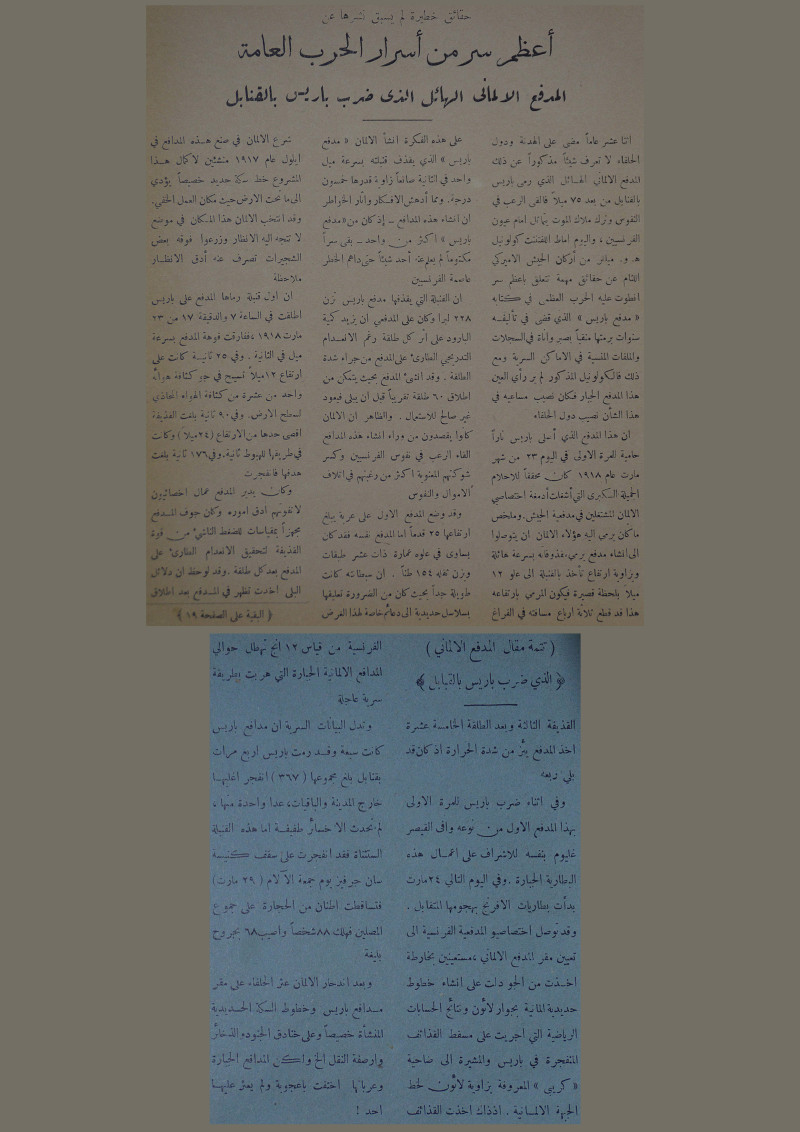 حقائق خطيرة لم يسبق نشرها عن
أعظم سر من أسرار الحرب العامة
المدفع الالماني الهائل الذى ضرب باريس بالقنابل
اثنا عشر عاماً مضى على الهدنة ودول
الحلفاء لا تعرف شيئاً مذكوراً عن ذلك
المدفع الالماني الهائل الذي رمى باريس
بالقنابل من بعد ٧٥ ميلاً فالقى الرعب في
النفوس وترك ملاك الموت يتماثل امام عيون
الفرنسيين ، واليوم اماط اللفتننت كولونيل
ه . و . ميللر من أركان الجيش الاميركي
اللثام عن حقائق مهمة تتعلق باعظم سر
انطوت عليه الحرب العظمى في كتابه
« مدفع باريس » الذي قضى في تأليفه
سنوات برمتها منقباً بصبر وأناة في السجلات
والملفات المنسية في الاماكن السرية ومع
ذلك فالكولونيل المذكور لم ير رأي العين
هذا المدفع الجبار فكان نصيب مساعيه في
هذا الشأن نصيب دول الحلفاء
ان هذا المدفع الذي أصلى باريس ناراً
حامية للمرة الاولى في اليوم ٢٣ من شهر
مارت عام ١٩١٨ كان محققاً للاحلام
الجميلة الكبرى التي أشغلت أدمغة اختصاصي
الالمان المشتغلين في مدفعية الجيش. وملخص
ما كان يرمي اليه هؤلاء الالمان ان يتوصلوا
الى انشاء مدفع يرمي مقذوفاته بسرعة هائلة
وبزاوية ارتفاع تأخذ بالقنبلة الى علو ١٢
ميلا بلحظة قصيرة فيكون المرمي بارتفاعه
هذا قد قطع ثلاثة ارباع مسافته في الفراغ
على هذه الفكرة انشأ الالمان « مدفع
باريس » الذي يقذف قنبلته بسرعة ميل
واحد في الثانية صانعاً زاوية قدرها خمسون
درجة. ومما أدهش الافكار وأثار الخواطر
ان انشاء هذه المدافع ــ إذ كان من «مدفع
باريس » اكثر من واحد ــ بقى سراً
مكتوماً لم يعلم عنه أحد شيئاً حتى داهم الخطر
عاصمة الفرنسيين
ان القنبلة التي يقذفها مدفع باريس تزن
٢٢٨ ليرا وكان على المدفعي ان يزيد كمية
البارود على أثر كل طلقة رغم الانعدام
التدريجي الطارئ على المدفع من جراء شدة
الطلقة . وقد انشئ المدفع بحيث يتمكن من
اطلاق ٦٠ طلقة تقريباً قبل أن يبلى فيعود
غير صالح للاستعمال . والظاهر ان الالمان
كانوا يقصدون من وراء انشاء هذه المدافع
القاء الرعب في نفوس الفرنسيين وكسر
شوكتهم المعنوية اكثر من رغبتهم في اتلاف
الاموال والنفوس
وقد وضع المدفع الاول على عربة يبلغ
ارتفاعها ٢٥ قدماً أما المدفع نفسه فقد كان
يساوى في علوه عمارة ذات عشر طبقات
وزن ثقله ١٥٤ طناً . ان سبطانته كانت
طويلة جداً بحيث كان من الضرورة تعليقها
بسلاسل حديدية الى دعائم خاصة لهذا الغرض
شرع الالمان في صنع هذه المدافع في
ايلول عام ١٩١٧ منشئين لاكمال هذا
المشروع خط سكة حديد خصيصاً يؤدي
الى ما تحت الارض حيث مكان العمل الخفي.
وقد انتخب الالمان هذا المكان في موضع
لا تتجه اليه الانظار وزرعوا فوقه بعض
الشجيرات تصرف عنه أدق الانظار
ملاحظة
ان اول قنبلة رماها المدفع على باريس
اطلقت في الساعة ٧ والدقيقة ١٧ من ٢٣
مارت ١٩١٨ ، ففارقت فوهة المدفع بسرعة
ميل في الثانية . وفي ٢٥ ثانية كانت على
ارتفاع ١٢ ميلاً تسبح في جو كثافة هوائه
واحد من عشرة من كثافة الهواء المحاذي
لسطح الارض. وفي ٩٠ ثانية بلغت القذيفة
اقصى حدها من الارتفاع (٢٤ ميلاً) وكانت
في طريقها للهبوط ثانية. وفي ١٧٦ ثانية بلغت
هدفها فانفجرت
وكان يدير المدفع عمال اخصائيون
لا تفوتهم ادق اموره وكان جوف المدفع
مجهزاً بمقياسات للضغط الناشئ من قوة
القذيفة لتحقيق الانعدام الطارئ على
المدفع بعد كل طلقة . وقد لوحظ ان دلائل
البلى أخذت تظهر في المدفع بعد اطلاق
﴿ البقية على الصفحة ١٩ ﴾
( تتمة مقال المدفع الالماني )
﴿ الذي ضرب باريس بالقنابل ﴾
القذيفة الثالثة وبعد الطلقة الخامسة عشرة
اخذ المدفع يئز من شدة الحرارة اذ كان قد
بلي ربعه
وفي اثناء ضرب باريس للمرة الاولى
بهذا المدفع الاول من نوعه وافى القيصر
غليوم بنفسه للاشراف على اعمال هذه
البطارية الجبارة . وفي اليوم التالي ٢٤ مارت
بدأت بطاريات الافرنج بهجومها المتقابل .
وقد توصل اختصاصيو المدفعية الفرنسية الى
تعيين مقر المدفع الالماني ، مستعينين بخارطة
اخذت من الجو دلت على انشاء خطوط
حديدية المانية بجوار لاؤن ونتائج الحسابات
الرياضية التي اجريت على مسقط القذائف
المنفجرة في باريس والمشيرة الى ضاحية
« كربي » المعروفة بزاوية لاؤن لخط
الجبهة الالمانية . اذذاك اخذت القذائف
الفرنسية من قياس ١٢ انج تهطل حوالي
المدافع الالمانية الجبارة التي هربت بطريقة
سرية عاجلة
وتدل البيانات السرية ان مدافع باريس
كانت سبعة وقد رمت باريس اربع مرات
بقنابل بلغ مجموعها ( ٣٦٧ ) انفجر اغلبها
خارج المدينة والباقيات، عدا واحدة منها ،
لم تحدث الا خسائر طفيفة اما هذه القنبلة
المستثناة فقد انفجرت على سقف كنيسة
سان جيرفيز يوم جمعة الآلام ( ٢٩ مارت)
فتساقطت اطنان من الحجارة على جموع
المصلين فهلك ٨٨ شخصاً واصيب ٦٨ بجروح
بليغة
وبعد اندحار الالمان عثر الحلفاء على مقر
مدافع باريس وخطوط السكة الحديدية
المنشأة خصيصاً وعلى خنادق الجنود والذخائر
وارصفة النقل الخ ولكن المدافع الجبارة
وعرباتها اختفت باعجوبة ولم يعثر عليها
احد !